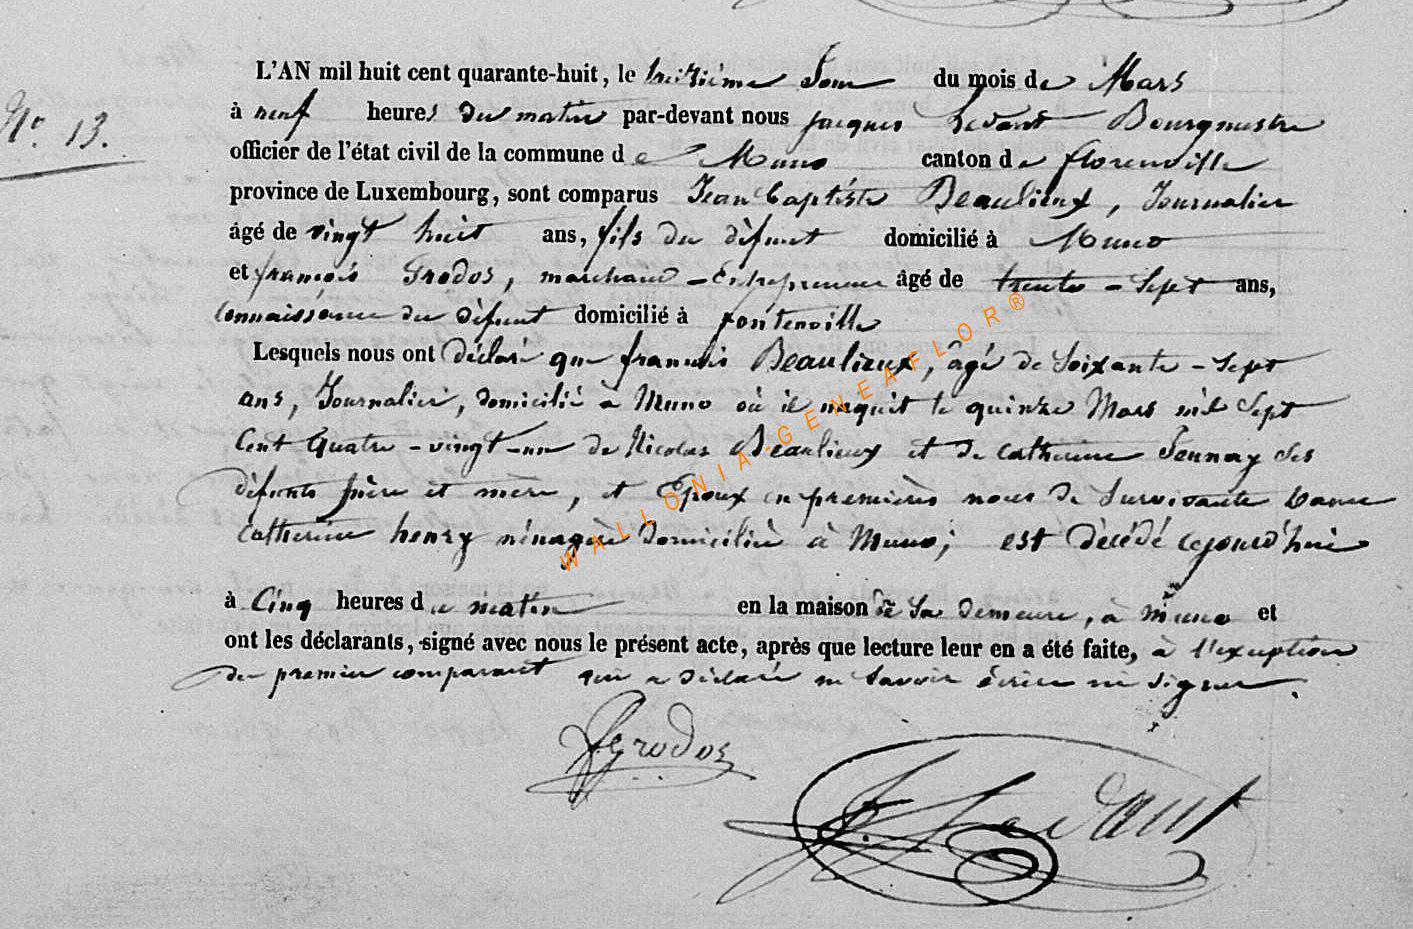 L'AN mil huit cent quarante-huit, le treizième Jour du mois de Mars
No. 13.
à neuf heures du matin par-devant nous jacques Levant Bourgmestre
officier de l'état civil de la commune de Muno canton de florenville
province de Luxembourg, sont comparus Jean baptiste Beaulieux, Journalier
âgé de vingt huit ans, fils du défunt domicilié à Muno
et françois Grodos, marchand - Entrepreneur âgé de trente - Sept ans,
Connaissance du défunt domicilié à fontenoille
Lesquels nous ont déclaré que francois Beaulieux, âgé de Soixante - Sept
ans, Journalier, domicilié à Muno où il naquit le quinze Mars mil Sept
Cent Quatre - vingt - un de Nicolas Beaulieux et de Catherine ses
défunts père et mère, et Epoux en premières noces de Survivante Dame
Catherine henry ménagère domiciliée à Muno; est décédé cejourd'hui
à Cinq heures du matin en la maison de Sa demeure, à Muno et
ont les déclarants, signé avec nous le présent acte, après que lecture leur en a été faite, à l'exception
du premier comparant qui a déclaré ne Savoir écrire ni Signer.
f. Grodos
WALLONIA-GENEAFLOR®